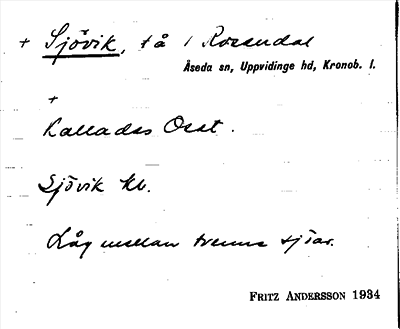 + Sjövik, tå / Rosendal
Åseda sn, Uppvidinge hd, Kronob. l.
+
Kallades Ovst.
Sjövik kb.
Låg mellan trenne sjöar.
FRITZ ANDERSSON 1934